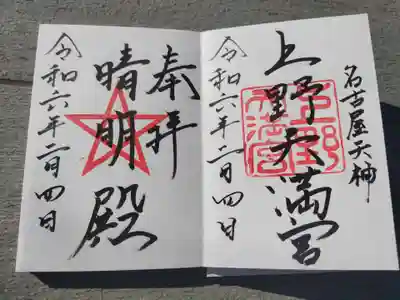 名古屋天神
上野天満宮
令和六年二月四日
奉拝
晴明殿
令和六年二月四日